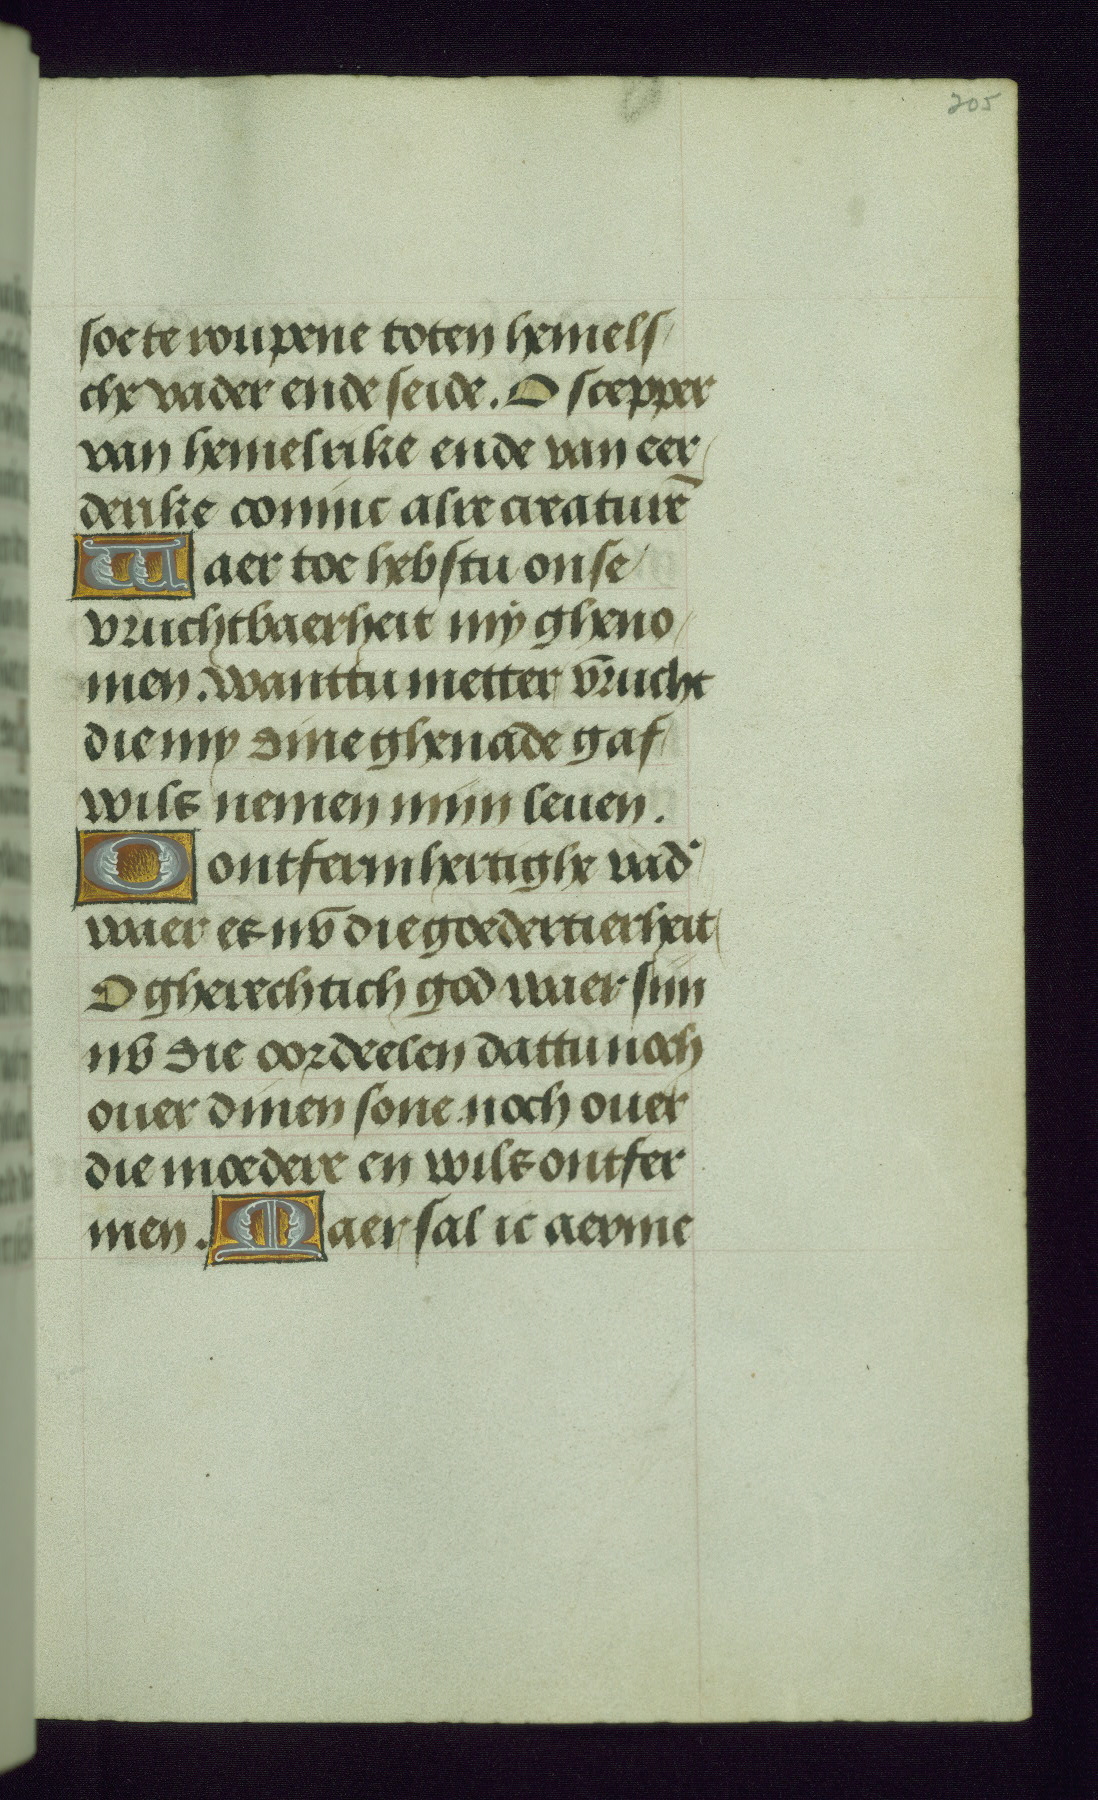 205
soe te roupene toten hemels/
che vader ende seide. O scepper
van hemelrike ende van eer/
derike coninc alre creaturē
Waer toe hebstu onse/
vruchtbaerheit mÿ gheno/
men. Wanttu metter vrucht
die my dine ghenade gaf/
wilt nemen mijn leuen.
O ontfermhertighe vad'
waer es nv die goedertierheit
O gherechtich god waer sijn
nv die oordeelen dattu noch
ouer dinen sone noch ouer
die moedere en wilt ontfer
men. Maer sal ic aerme